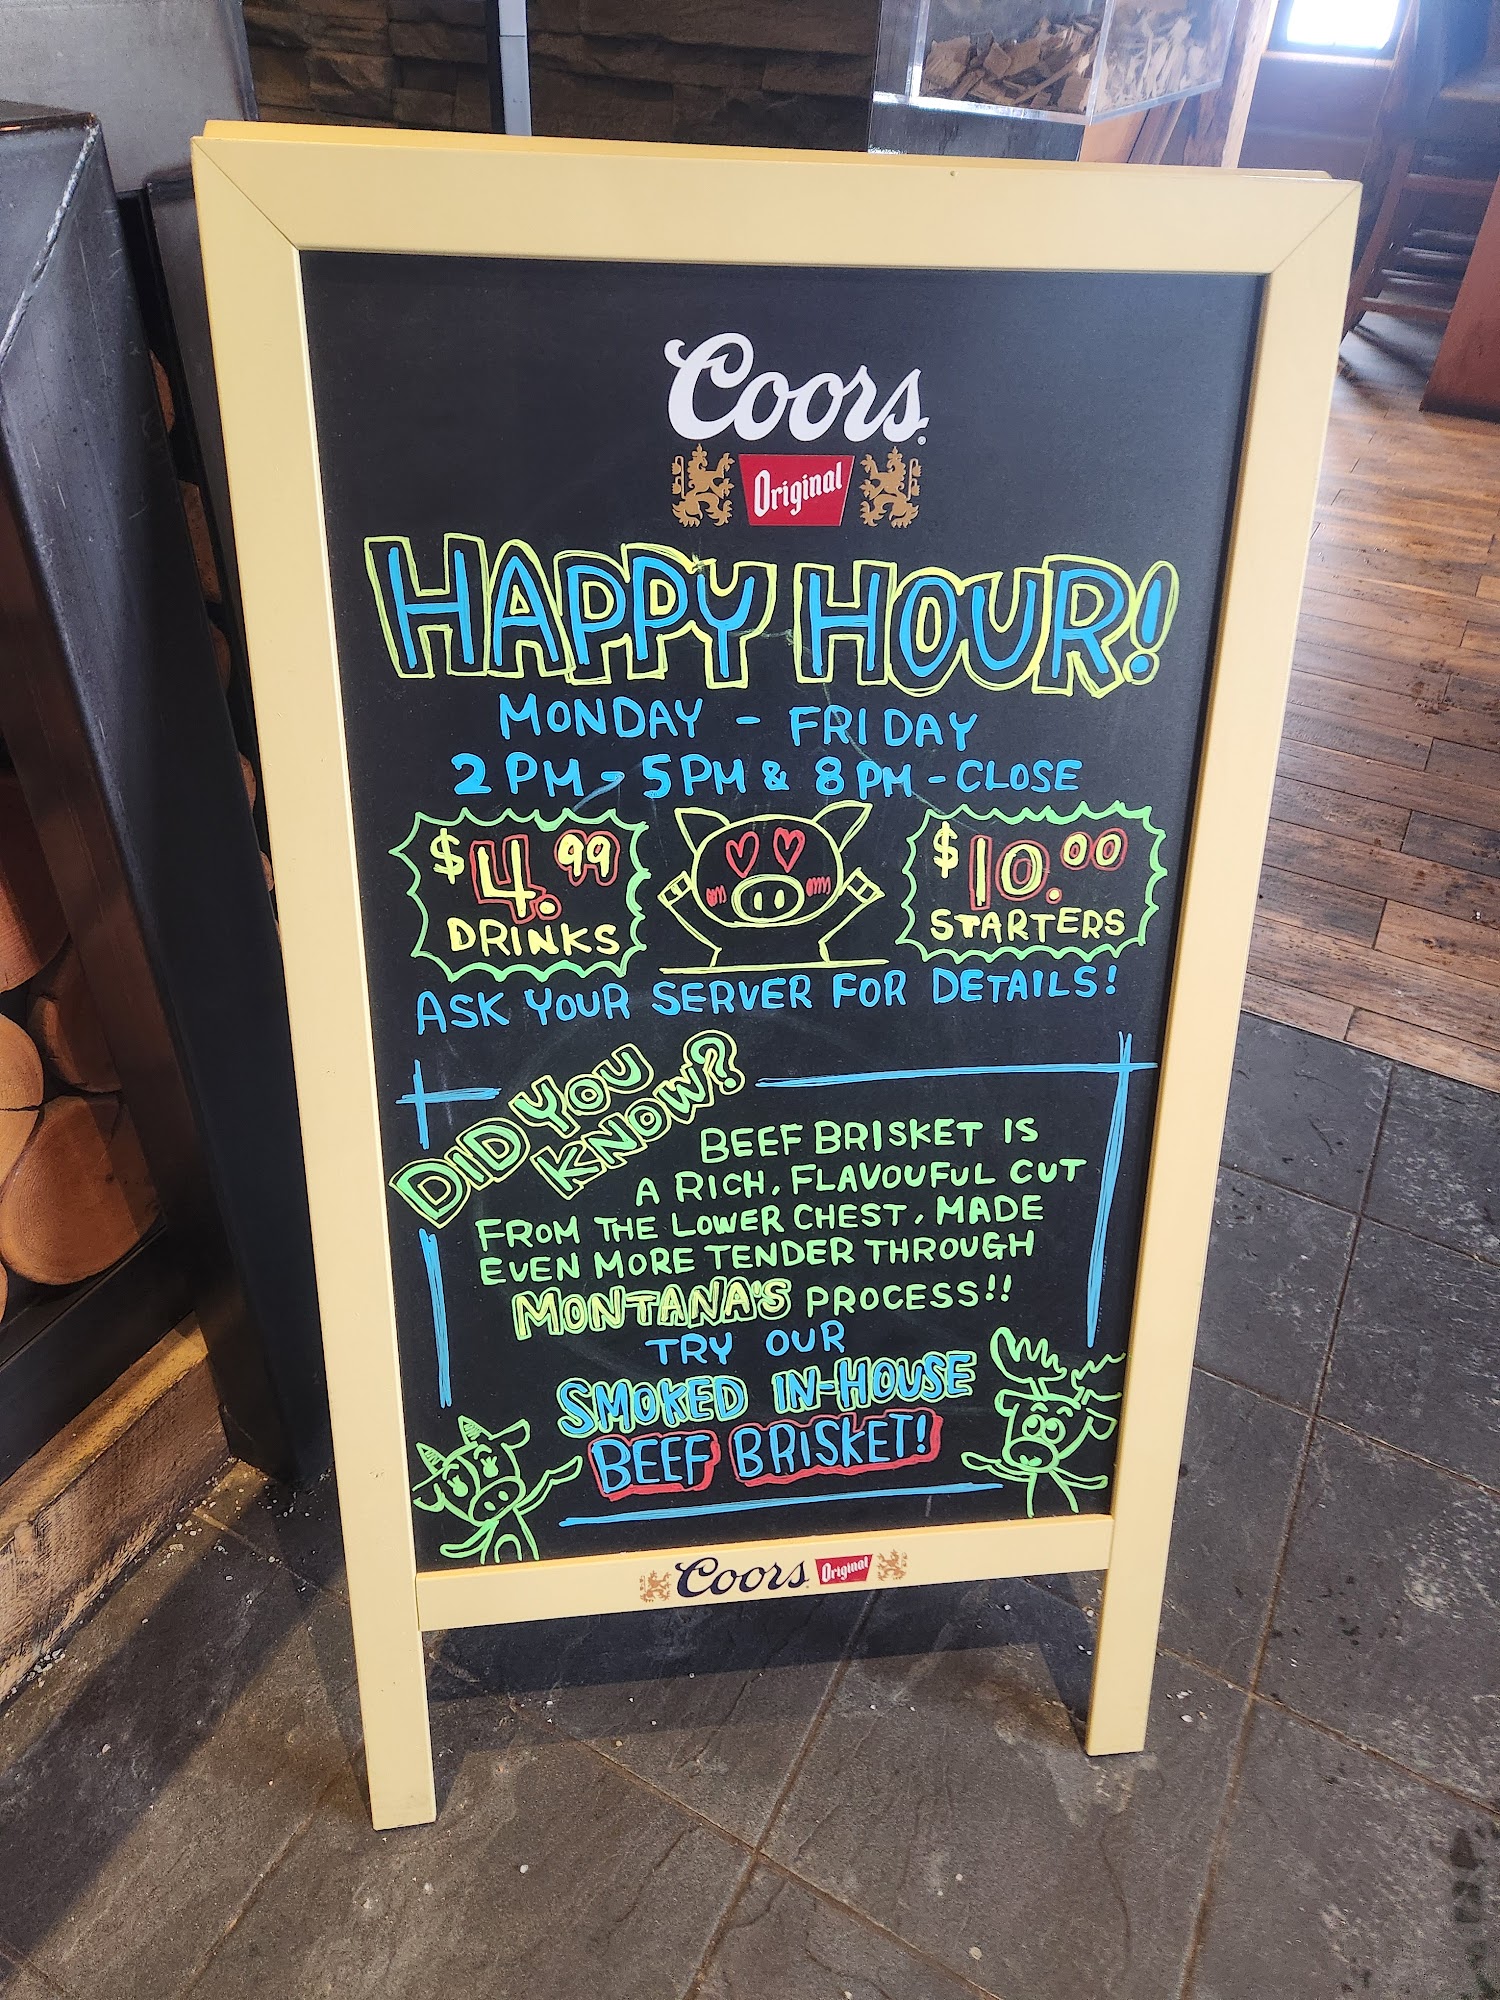 Coors
Original
HAPPY HOUR!
MONDAY - FRIDAY
2 PM - 5 PM & 8 PM - CLOSE
$4.99
DRINKS
$10.00
STARTERS
ASK YOUR SERVER FOR DETAILS!
DID YOU
KNOW?
BEEF BRISKET IS
A RICH, FLAVOUFUL CUT
FROM THE LOWER CHEST, MADE
EVEN MORE TENDER THROUGH
MONTANA'S PROCESS!!
TRY OUR
SMOKED IN-HOUSE
BEEF BRISKET!
Coors Original